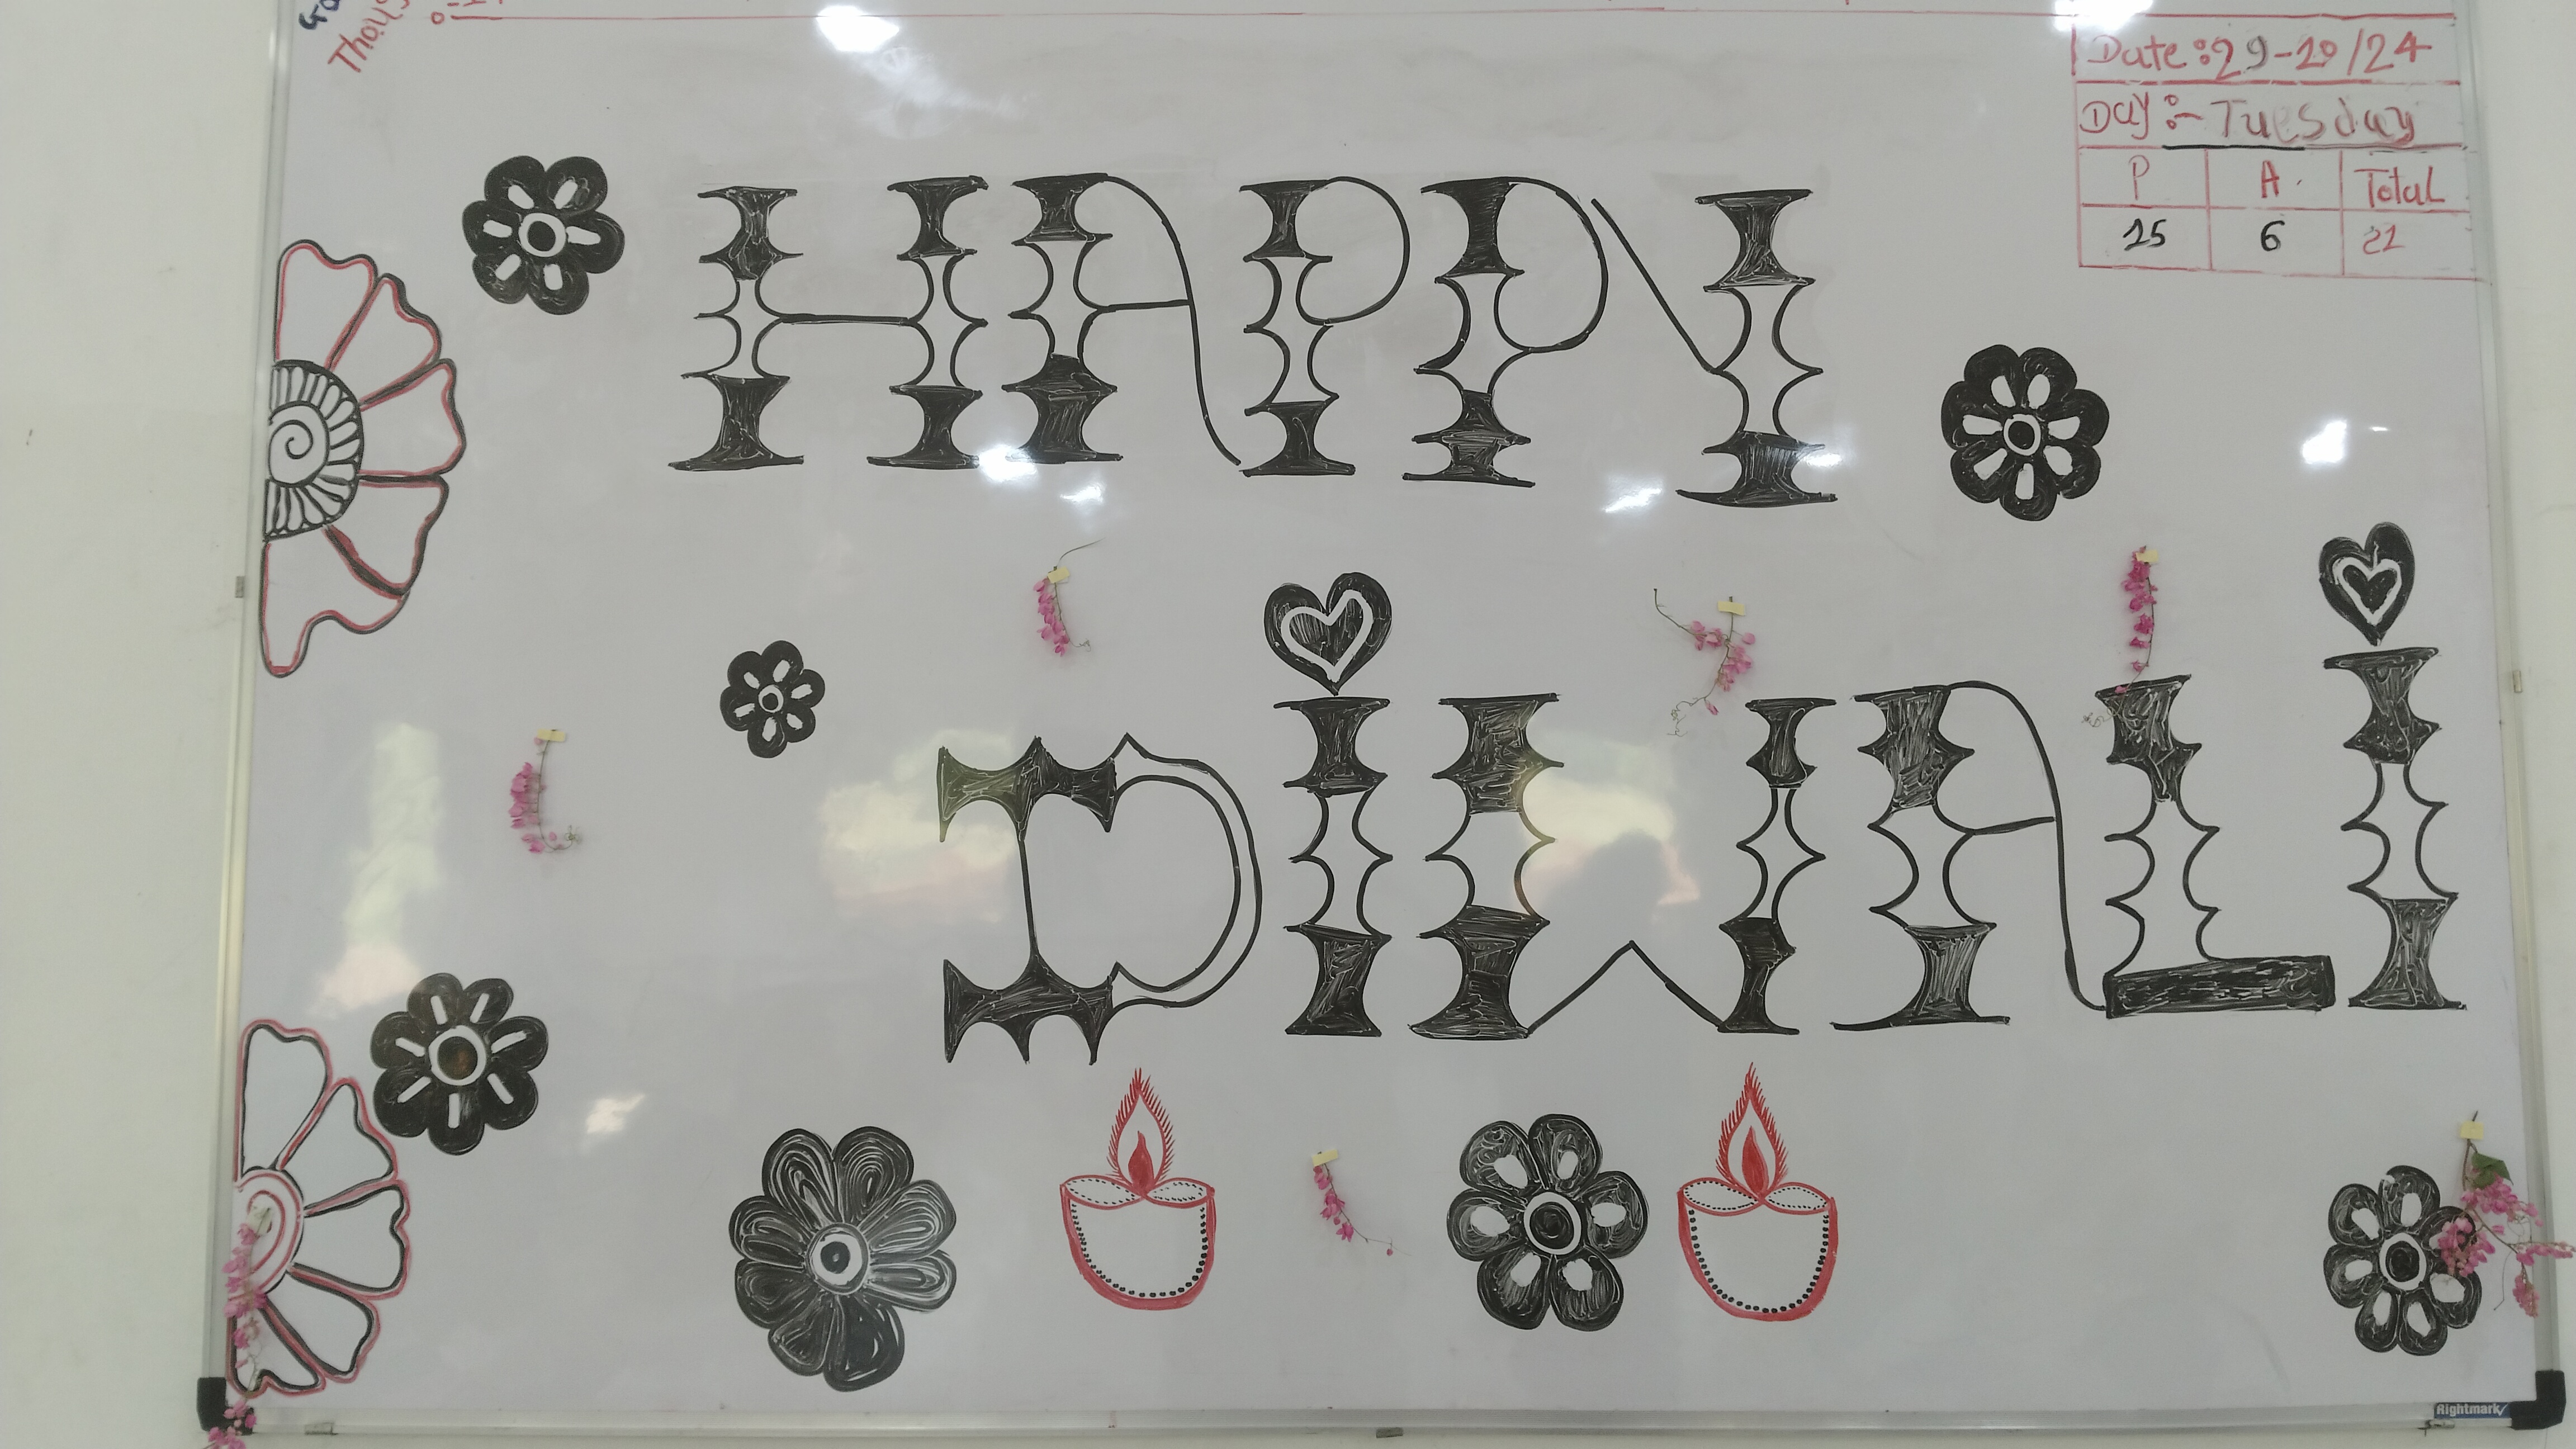 Date:29-10/24
Day:- Tuesday
P A. Total
15 6 21
HAPPY
DIWALI
Rightmark